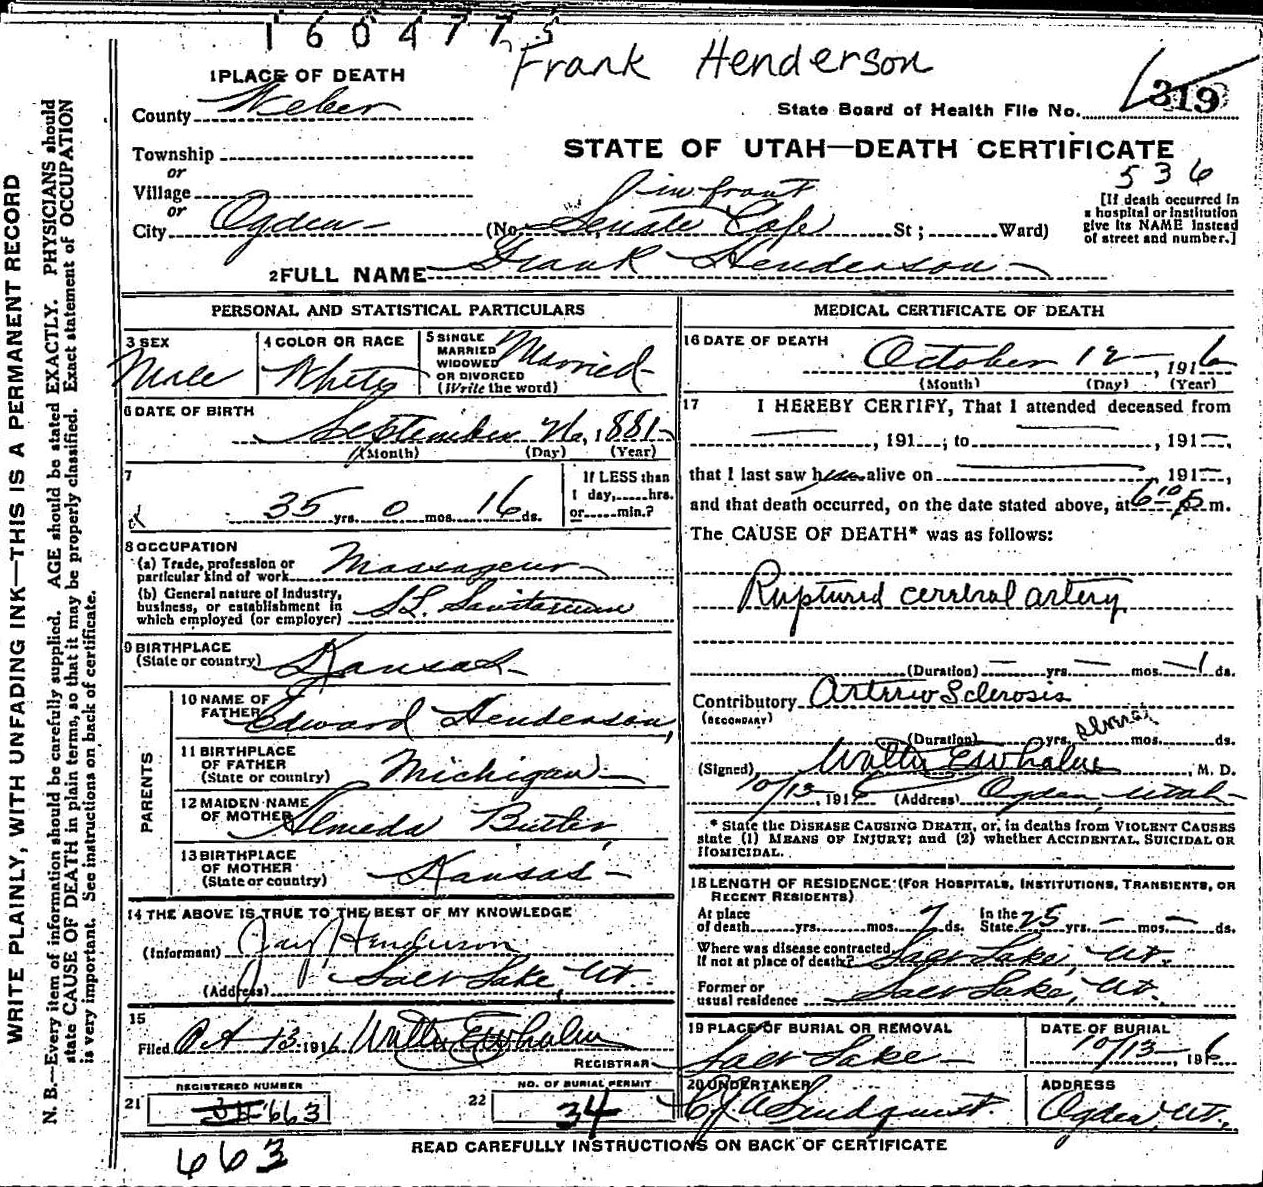 1604775
Frank Henderson
1 PLACE OF DEATH
County Weber
State Board of Health File No. 319
Township
or
STATE OF UTAH—DEATH CERTIFICATE
536
Village
or
in front
City Ogden (No. Senate Cafe St; Ward)
[If death occurred in a hospital or institution give its NAME instead of street and number.]
2 FULL NAME Frank Henderson
PERSONAL AND STATISTICAL PARTICULARS
3 SEX Male
4 COLOR OR RACE White
5 SINGLE MARRIED WIDOWED OR DIVORCED (Write the word) Married
6 DATE OF BIRTH
September 26, 1881
(Month) (Day) (Year)
7
35 yrs. 0 mos. 16 ds.
If LESS than 1 day,......hrs. or......min.?
8 OCCUPATION
(a) Trade, profession or particular kind of work Massageur
(b) General nature of Industry, business, or establishment in which employed (or employer) S.L. Sanitarium
9 BIRTHPLACE
(State or country) Kansas
PARENTS
10 NAME OF FATHER Edward Henderson,
11 BIRTHPLACE OF FATHER (State or country) Michigan
12 MAIDEN NAME OF MOTHER Almeda Butler
13 BIRTHPLACE OF MOTHER (State or country) Kansas
14 THE ABOVE IS TRUE TO THE BEST OF MY KNOWLEDGE
(Informant) Jay Henderson
(Address) Salt Lake, Ut.
15
Filed Oct 13 1916 Walter E Whalen
REGISTRAR
REGISTERED NUMBER
21 663
NO. OF BURIAL PERMIT
22 34
663
MEDICAL CERTIFICATE OF DEATH
16 DATE OF DEATH
October 12, 1916
(Month) (Day) (Year)
17 I HEREBY CERTIFY, That I attended deceased from
, 191 ; to , 191 ,
that I last saw h alive on , 191 ,
and that death occurred, on the date stated above, at 6 10 P m.
The CAUSE OF DEATH* was as follows:
Ruptured cerebral artery
(Duration) — yrs. — mos. 1 ds.
Contributory Arterio Sclerosis
(SECONDARY)
(Duration) yrs. mos. ds.
(Signed) Walter E Whalen, M. D.
10/13, 1916 (Address) Ogden, Utah
* State the DISEASE CAUSING DEATH, or, in deaths from VIOLENT CAUSES state (1) MEANS OF INJURY; and (2) whether ACCIDENTAL, SUICIDAL OR HOMICIDAL.
18 LENGTH OF RESIDENCE (FOR HOSPITALS, INSTITUTIONS, TRANSIENTS, OR RECENT RESIDENTS)
At place of death yrs. mos. 7 ds. In the State 25 yrs. — mos. — ds.
Where was disease contracted If not at place of death? Salt Lake, Ut.
Former or usual residence Salt Lake, Ut.
19 PLACE OF BURIAL OR REMOVAL
Salt Lake
DATE OF BURIAL
10/13 1916
20 UNDERTAKER
C.J.A. Lindquist.
ADDRESS
Ogden, Ut.
READ CAREFULLY INSTRUCTIONS ON BACK OF CERTIFICATE
WRITE PLAINLY, WITH UNFADING INK—THIS IS A PERMANENT RECORD
N. B.—Every item of information should be carefully supplied. AGE should be stated EXACTLY. PHYSICIANS should
state CAUSE OF DEATH in plain terms, so that it may be properly classified. Exact statement of OCCUPATION
is very important. See instructions on back of certificate.